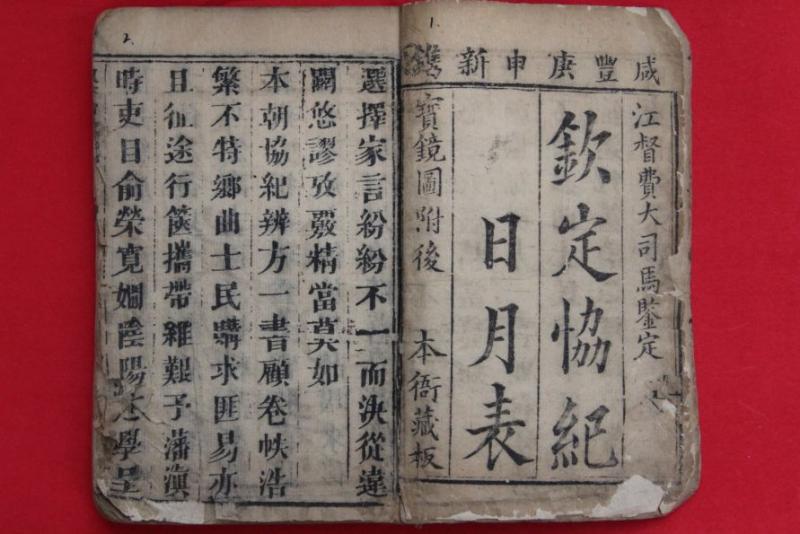 1.
咸豐庚申新鐫
江督費大司馬鑒定
欽定協紀
日月表
寶鏡圖附後 本衙藏板
2.
選擇家言紛紛不一而決從違
闢悠謬攷覈精當莫如
本朝協紀辨方一書顧卷帙浩
繁不特鄉曲士民購求匪易亦
且征途行篋攜帶維艱予藩滇
時吏目俞榮寬嫻陰陽之學呈